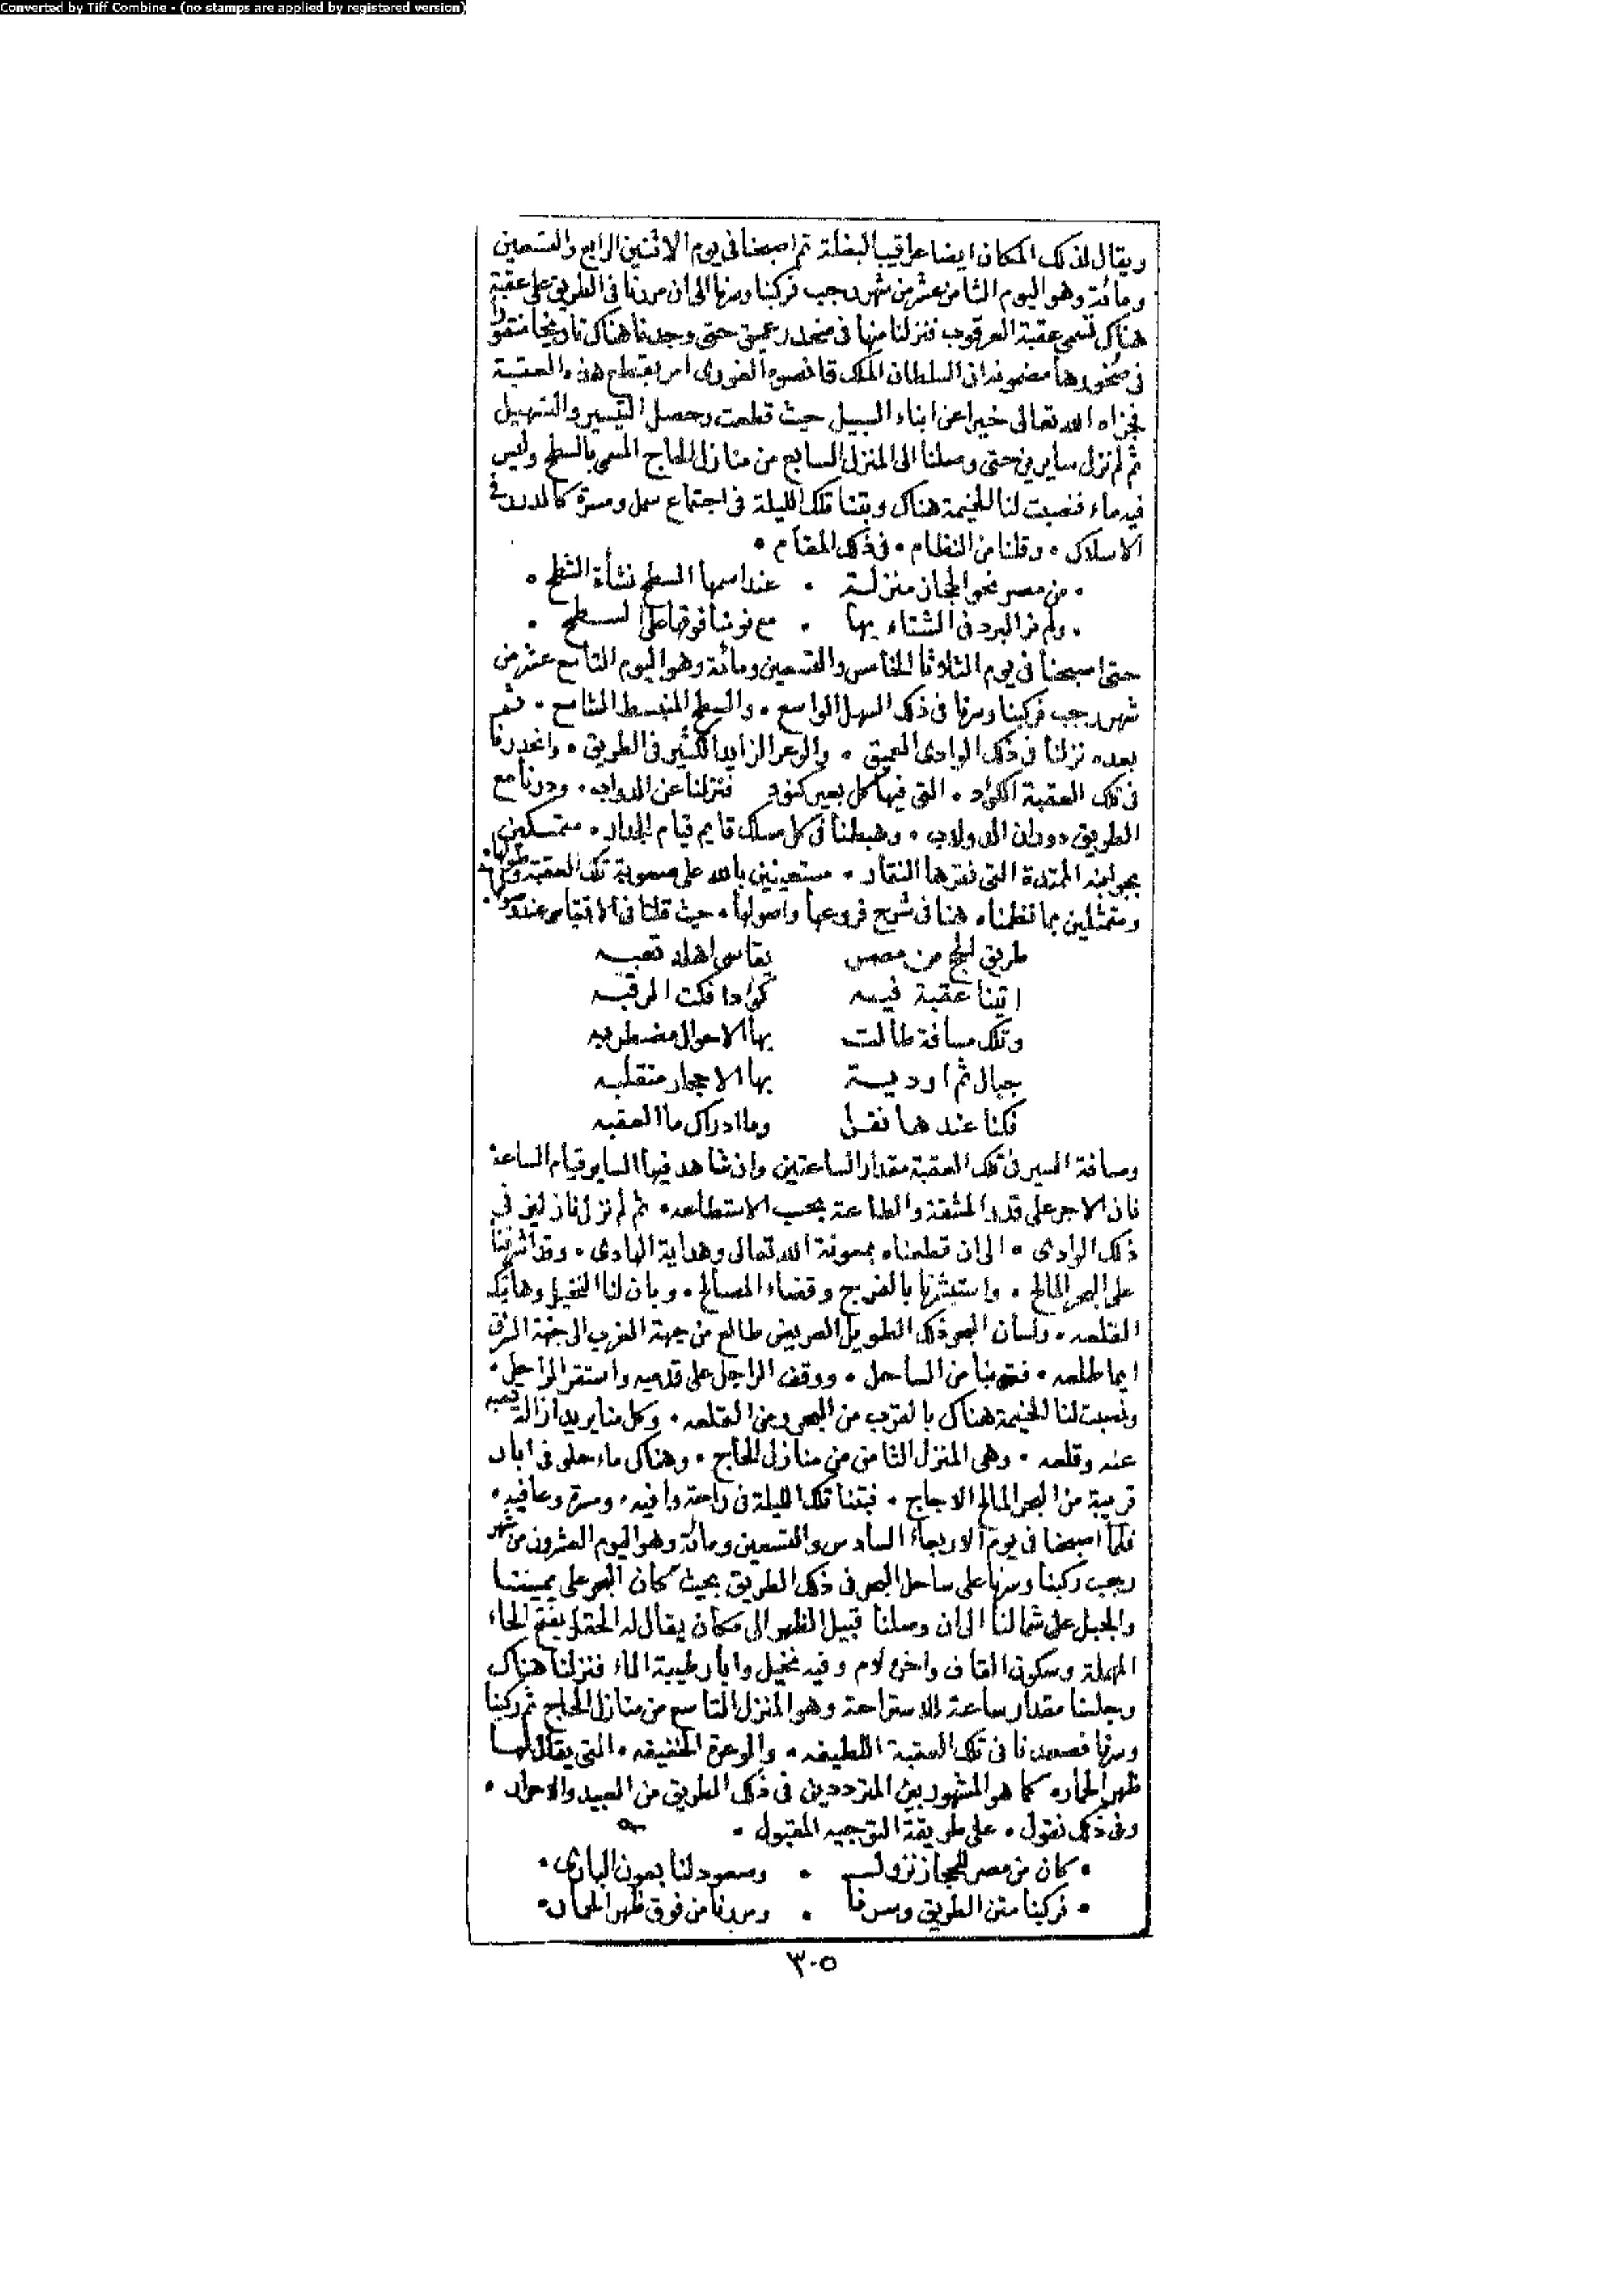 Converted by Tiff Combine - (no stamps are applied by registered version)
ويقال لذلك المكان ايضا عراقيب البغلة ثم اصبحنا في يوم الاثنين الرابع والتسعين
ومائة وهو اليوم الثامن عشر من شهر رجب فركبنا وسرنا الى ان مررنا في الطريق على عقبة
هناك تسمى عقبة العرقوب فنزلنا منها في منحدر عميق حتى وجدنا هناك تاريخا منقورا
في صخورها مضمونه ان السلطان الملك قانصوه الغورى امر بقطع هذه العقبة
فجزاه الله تعالى خيرا عن ابناء السبيل حيث قطعت وحصل التيسير والتسهيل
ثم لم نزل سايرين حتى وصلنا الى المنزل السابع من منازل الحاج المسمى بالسطح وليس
فيه ماء فنصبت لنا الخيمة هناك وبتنا تلك الليلة في اجتماع شمل ومسرة كالدرر في
الاسلاك • وقلنا من النظام • في ذلك المقام •
• من مصر نحو الحجاز منزلة • عند اسمها السطح نشأة الشطح •
• ولم نر البرد في الشتاء بها • مع نومنا فوقها على السطح •
حتى اصبحنا في يوم الثلاثا الخامس والتسعين ومائة وهو اليوم التاسع عشر من
شهر رجب فركبنا وسرنا في ذلك السهل الواسع • والسطح المنبسط الشاسع • ثم
بعده نزلنا في ذلك الوادى العميق • والوعر الزايد الكثير في الطريق • وانحدرنا
في تلك العقبة الكؤد • التي فيها كل بعير كنود فنزلنا عن الدواب • ودرنا مع
الطريق دوران الدولاب • وهبطنا في كل مسلك قايم قيام الجدار • متمسكين
بجوانبه الممتدة التي نقرها النقار • مستعينين بالله على صعوبة تلك العقبة وطولها •
ومتمثلين بما نظمناه هنا في شرح فروعها واصولها • حيث قلنا في الاقتباس عند
طريق الحج من مصر يقاسى اهله تعبه
اتينا عقبة فيه كؤدا فكت الرقبه
وتلك مسافة طالت بها الاحوال مضطربه
جبال ثم اودية بها الاحجار منقلبه
فكنا عندها نقرا وما ادراك ما العقبه
ومسافة السير في تلك العقبة مقدار الساعتين وان شاهد فيها الساير قيام الساعة
فان الاجر على قدر المشقة والطاعة بحسب الاستطاعه • ثم لم نزل نازلين في
ذلك الوادى • الى ان قطعناه بمعونة الله تعالى وهداية الهادى • وقد اشرفنا
على البحر المالح • واستبشرنا بالفرج وقضاء المصالح • وبان لنا النخيل وهاتيك
القلعه • ولسان البحر ذلك الطويل العريض طالع من جهة الغرب الى جهة الشرق
ايما طلعه • فتقربنا من الساحل • ووقف الراجل على قدميه واستقر الراحل •
ونصبت لنا الخيمة هناك بالقرب من البحر ومن القلعه • وكل منا يريد ازالة تعبه
عنه وقلعه • وهي المنزل الثامن من منازل الحاج • وهناك ماء حلو في ابار
قريبة من البحر المالح الاجاج • فبتنا تلك الليلة في راحة وافيه • ومسرة وعافيه •
فلما اصبحنا في يوم الاربعاء السادس والتسعين ومائة وهو اليوم العشرون من شهر
رجب ركبنا وسرنا على ساحل البحر في ذلك الطريق بحيث كان البحر على يميننا
والجبل على شمالنا الى ان وصلنا قبيل الظهر الى مكان يقال له الحقل بفتح الحاء
المهملة وسكون القاف واخره لام وفيه نخيل وابار طيبة الماء فنزلنا هناك
وجلسنا مقدار ساعة للاستراحة وهو المنزل التاسع من منازل الحاج ثم ركبنا
وسرنا فصعدنا في تلك العقبة اللطيفه • والوعرة الخفيفه • التي يقال لها
ظهر الحمار • كما هو المشهور بين المترددين في ذلك الطريق من العبيد والاحرار •
وفي ذلك نقول • على طريقة التوجيه المقبول •
• كان من مصر للحجاز نزول • وصعود لنا بعون البارى •
• فركبنا متن الطريق وسرنا • ومررنا من فوق ظهر الحمار •
٣٠٥